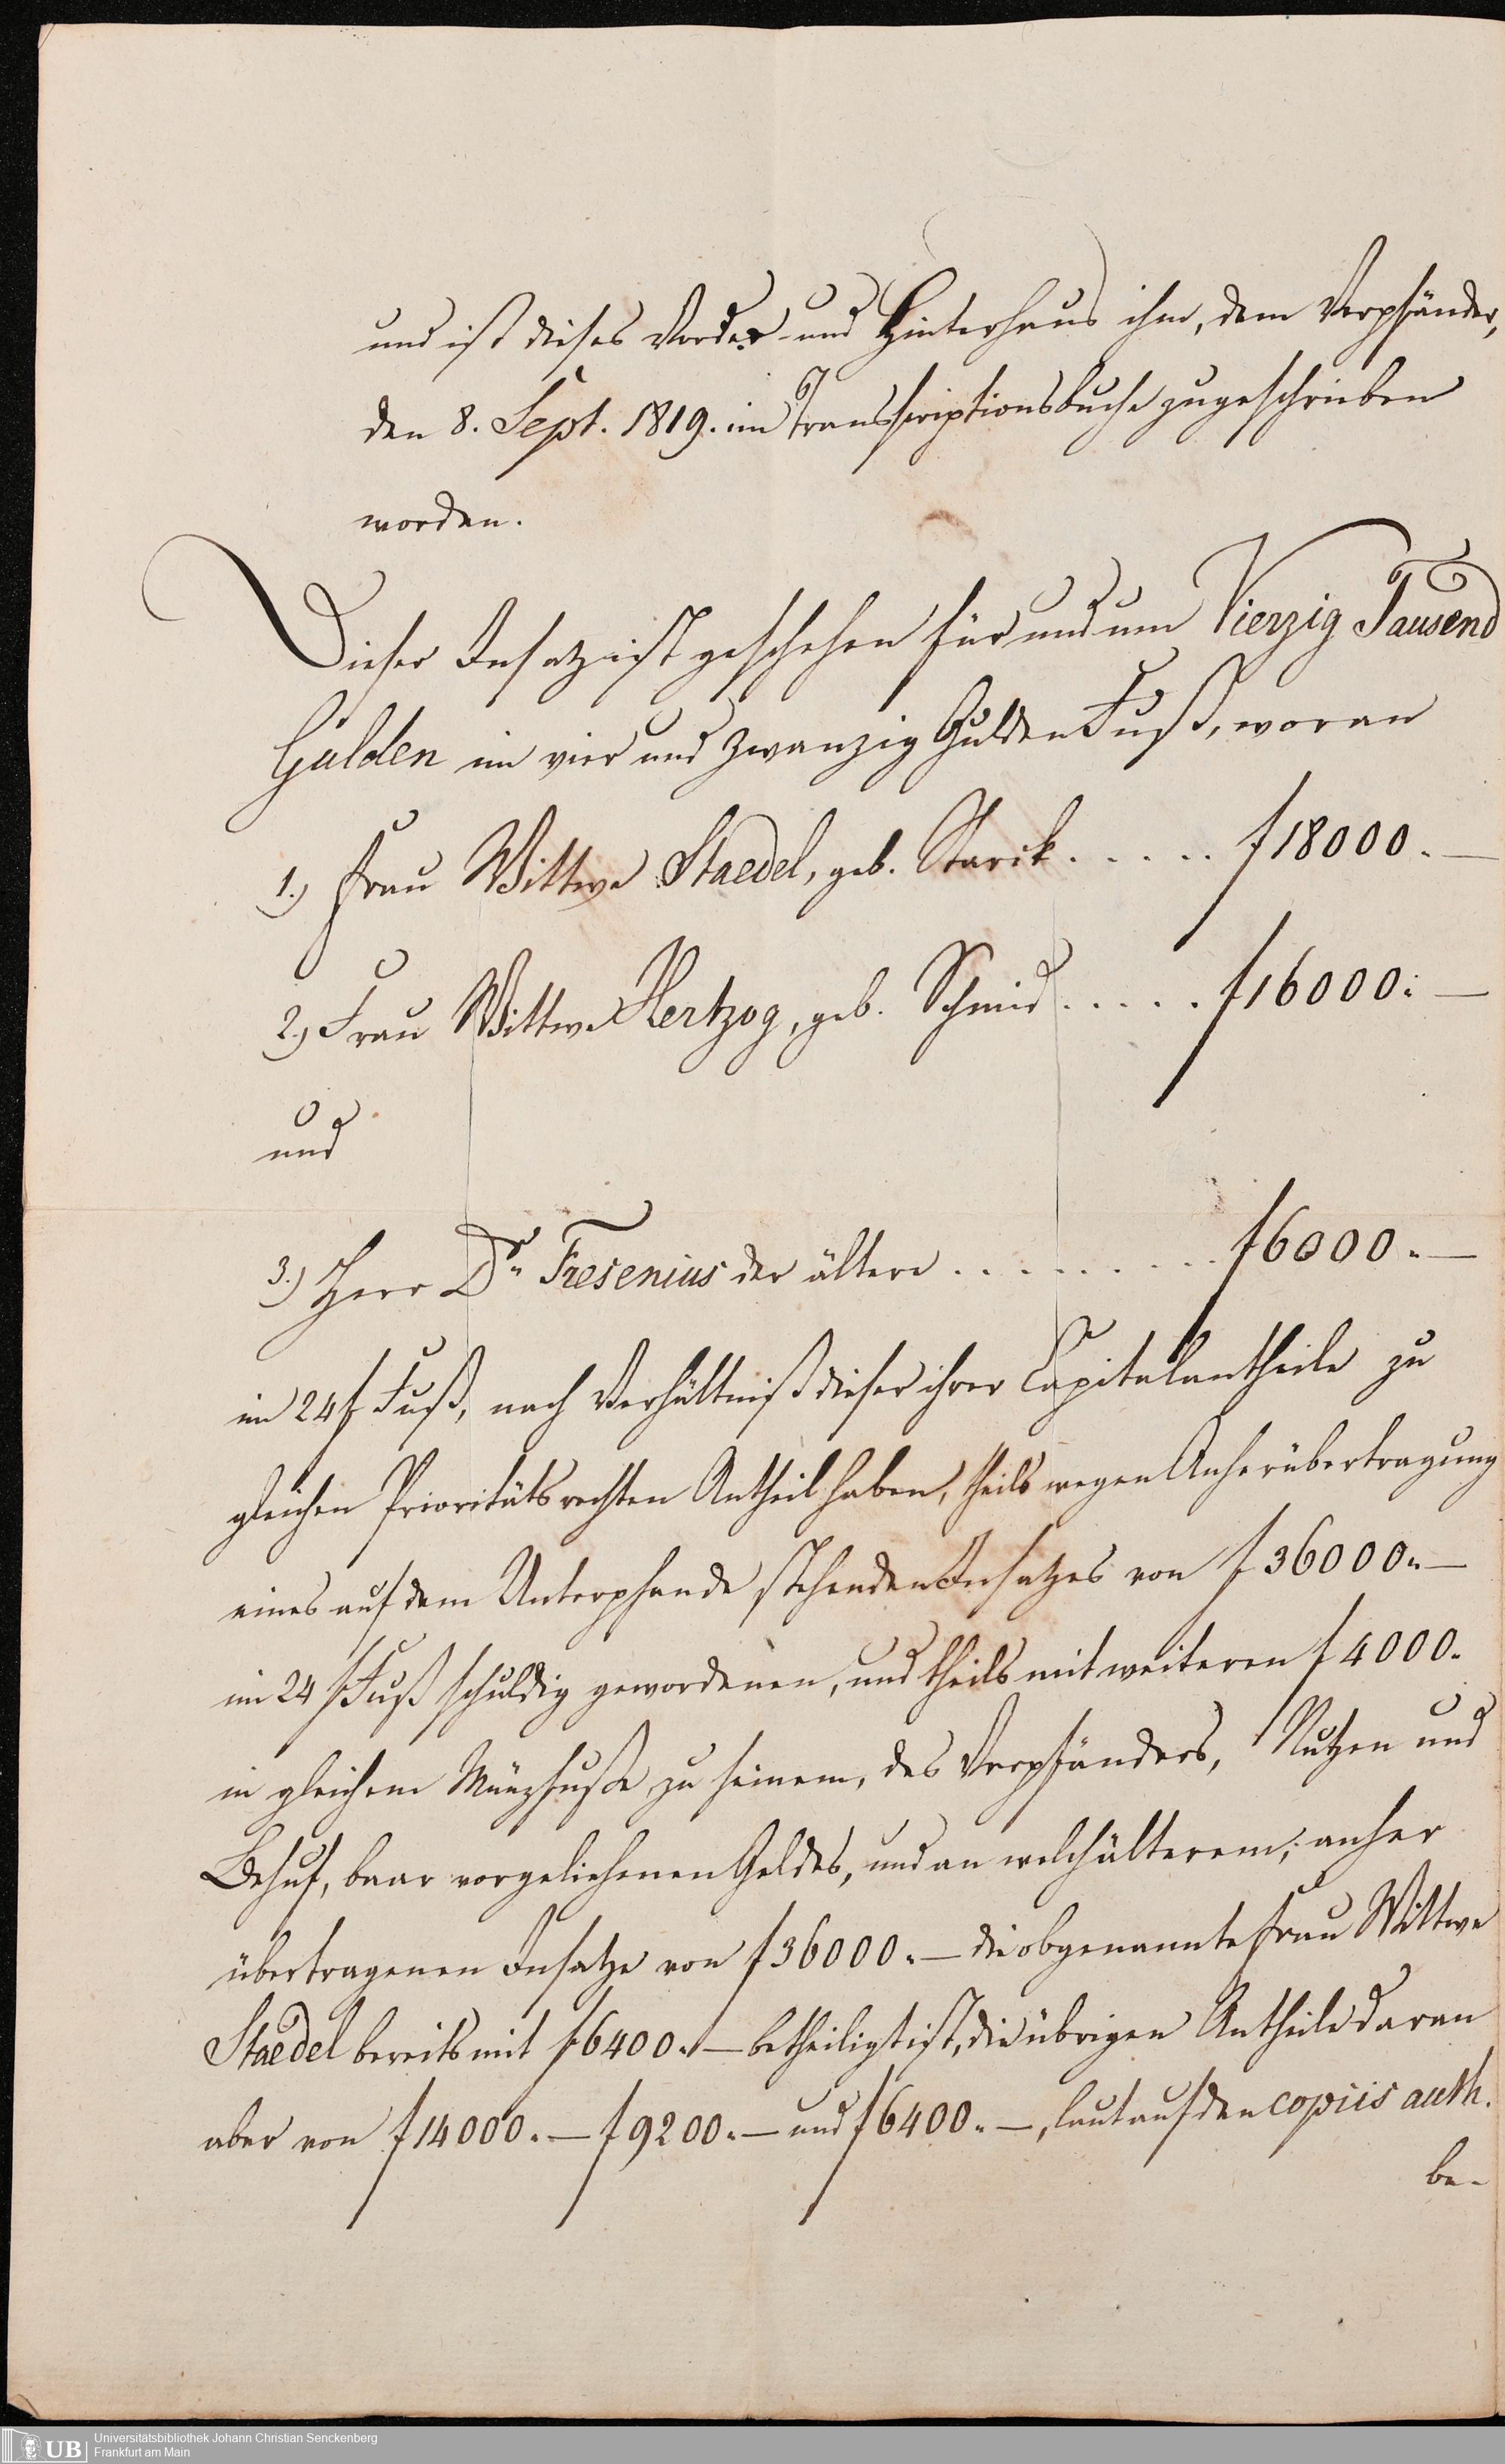 und ist dieses Vorder- und Hinterhaus ihm, dem Verpfänder,
den 8. Sept. 1819. im Transscriptionsbuche zugeschrieben
worden.
Dieser Insatz ist geschehen für und um Vierzig Tausend
Gulden im vier und zwanzig Gulden Fuß, woran
1.) Frau Wittwe Staedel, geb. Starck. . . . . . f 18000. —
2.) Frau Wittwe Hertzog, geb. Schmid . . . . . f 16000. —
und
3.) Herr Dr. Fresenius der ältere . . . . . . . . . f 6000. —
im 24 f Fuß, nach Verhältniß dieser ihrer Capitalantheile zu
gleichen Prioritätsrechten Antheil haben, theils wegen Anherübertragung
eines auf dem Unterpfande stehenden Insatzes von f 36000. —
im 24 f Fuß schuldig gewordenen, und theils mit weiteren f 4000.
in gleichem Münzfuße zu seinem, des Verpfänders, Nutzen und
Behuf, baar vorgeliehenen Geldes, und an welch älterem, anher
übertragenen Insatze von f 36000. — die obgenannte Frau Wittwe
Staedel bereits mit f 6400. — betheiligt ist, die übrigen Antheile daran
aber von f 14000. — f 9200. — und f 6400. —, laut auf den copiis auth.
be-
UB
Universitätsbibliothek Johann Christian Senckenberg
Frankfurt am Main